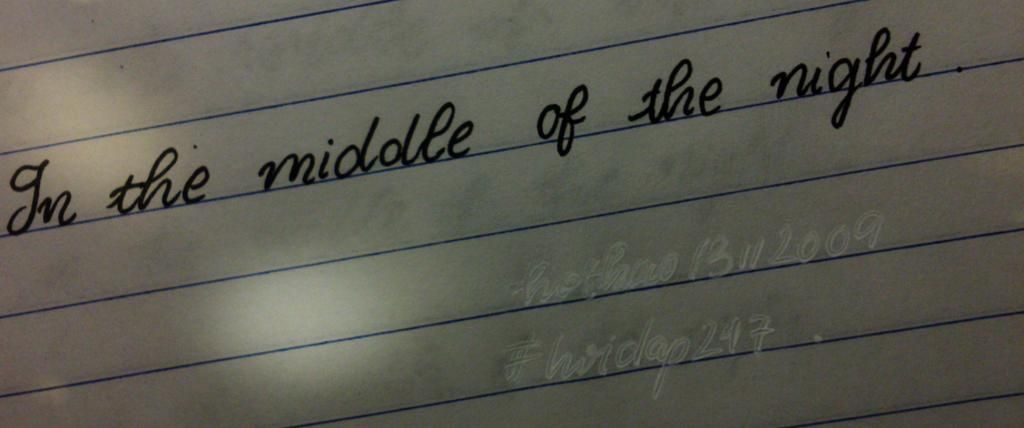 In the middle of the night.
hothao13112009
#hvidap247.